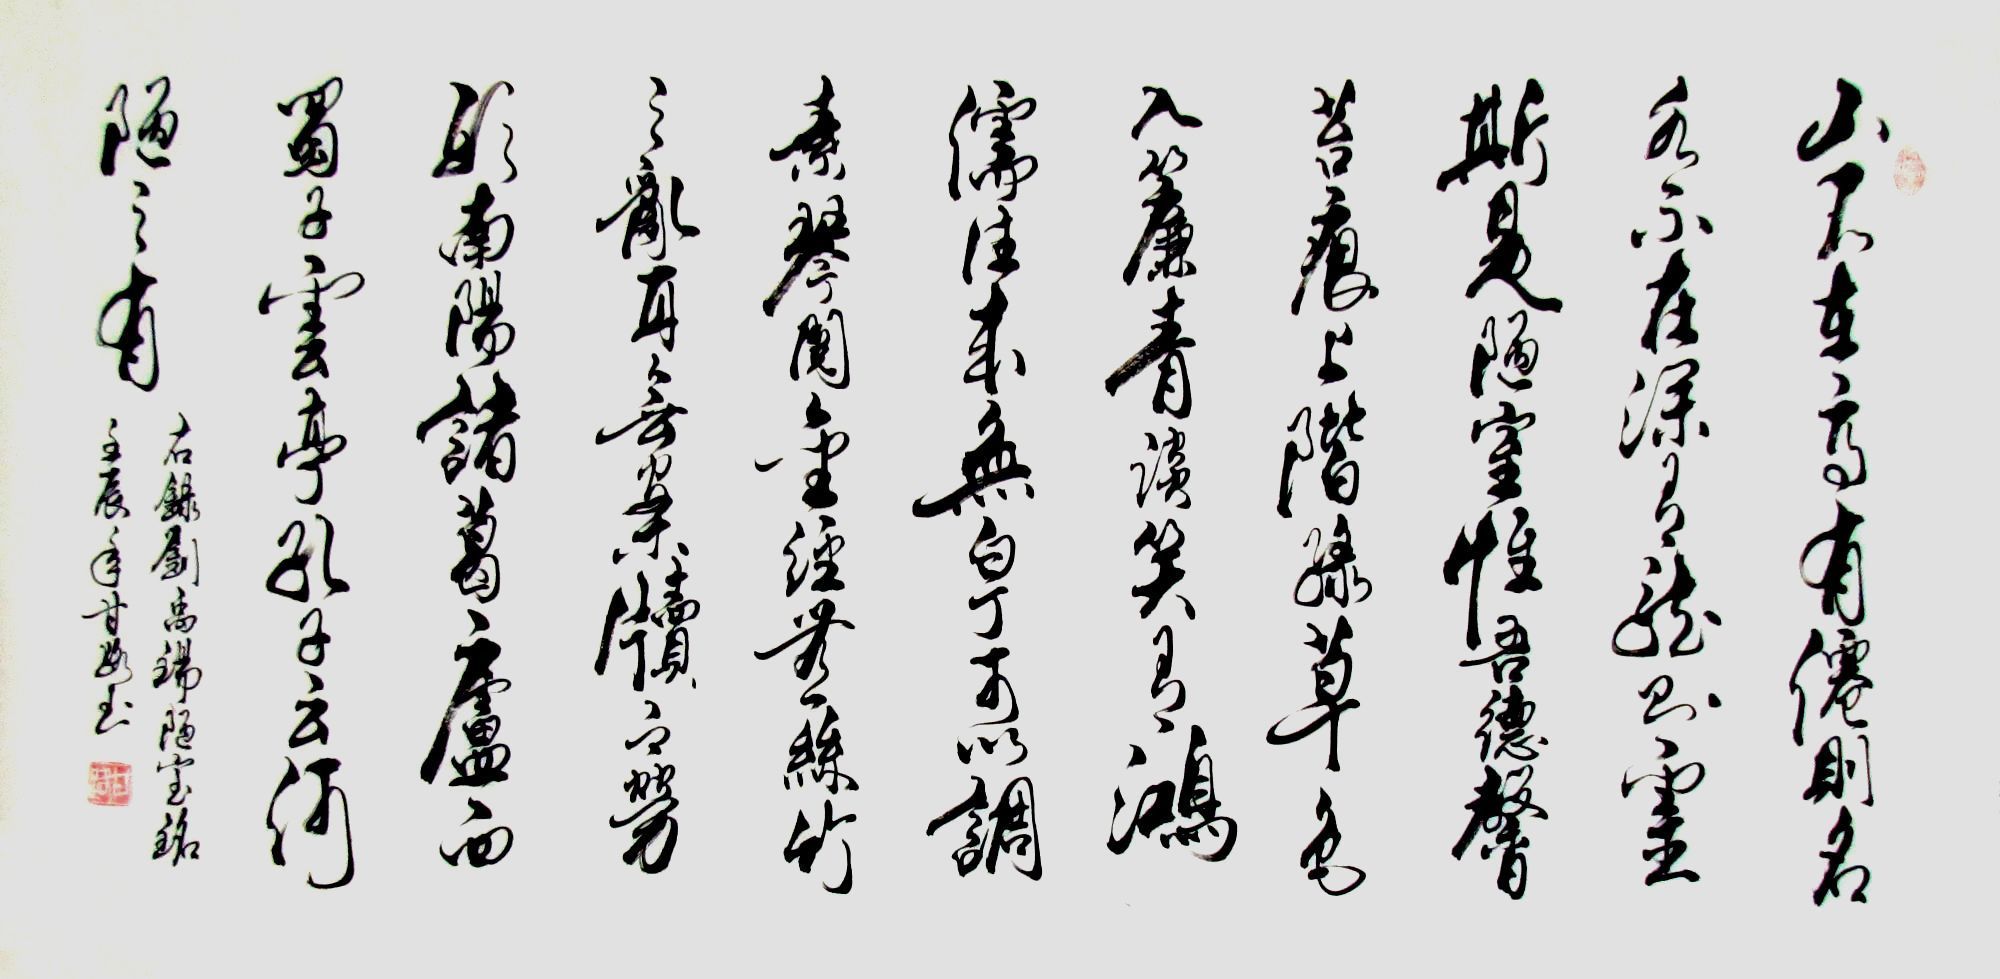 山不在高有僊則名
水不在深有龍則靈
斯是陋室惟吾德馨
苔痕上階綠草色
入簾青談笑有鴻
儒往來無白丁可以調
素琴閱金經無絲竹
之亂耳無案牘之勞
形南陽諸葛廬西
蜀子雲亭孔子云何
陋之有
右錄劉禹錫陋室銘
壬辰年甘